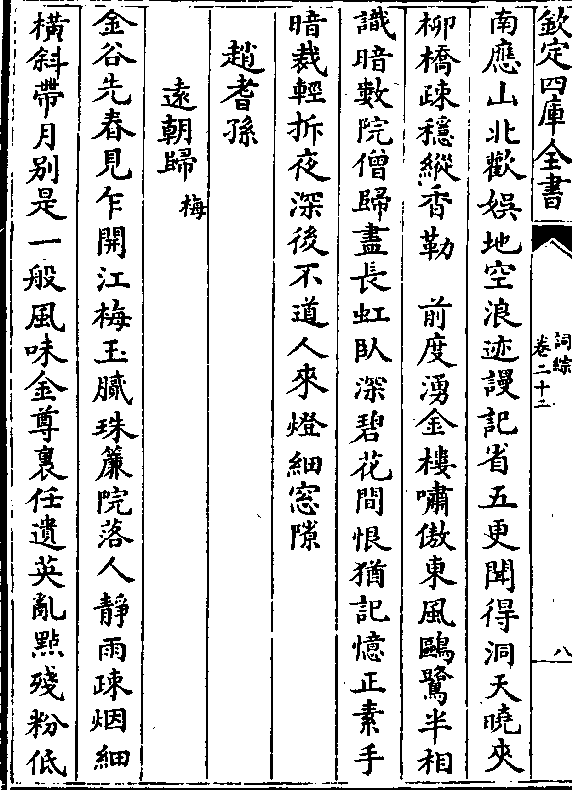 欽定四庫全書
詞綜
卷二十二
八
南應山北歡娯地空浪迹謾記省五更聞得洞天曉夾
柳橋疎穩縱香勒　前度湧金樓嘯傲東風鷗鷺半相
識暗數院僧歸盡長虹臥深碧花間恨猶記憶正素手
暗裁輕拆夜深後不道人來燈細窓隙
趙耆孫
遠朝歸梅
金谷先春見乍開江梅玉膩珠簾院落人靜雨疎烟細
橫斜帶月別是一般風味金尊裏任遺英亂㸃殘粉低